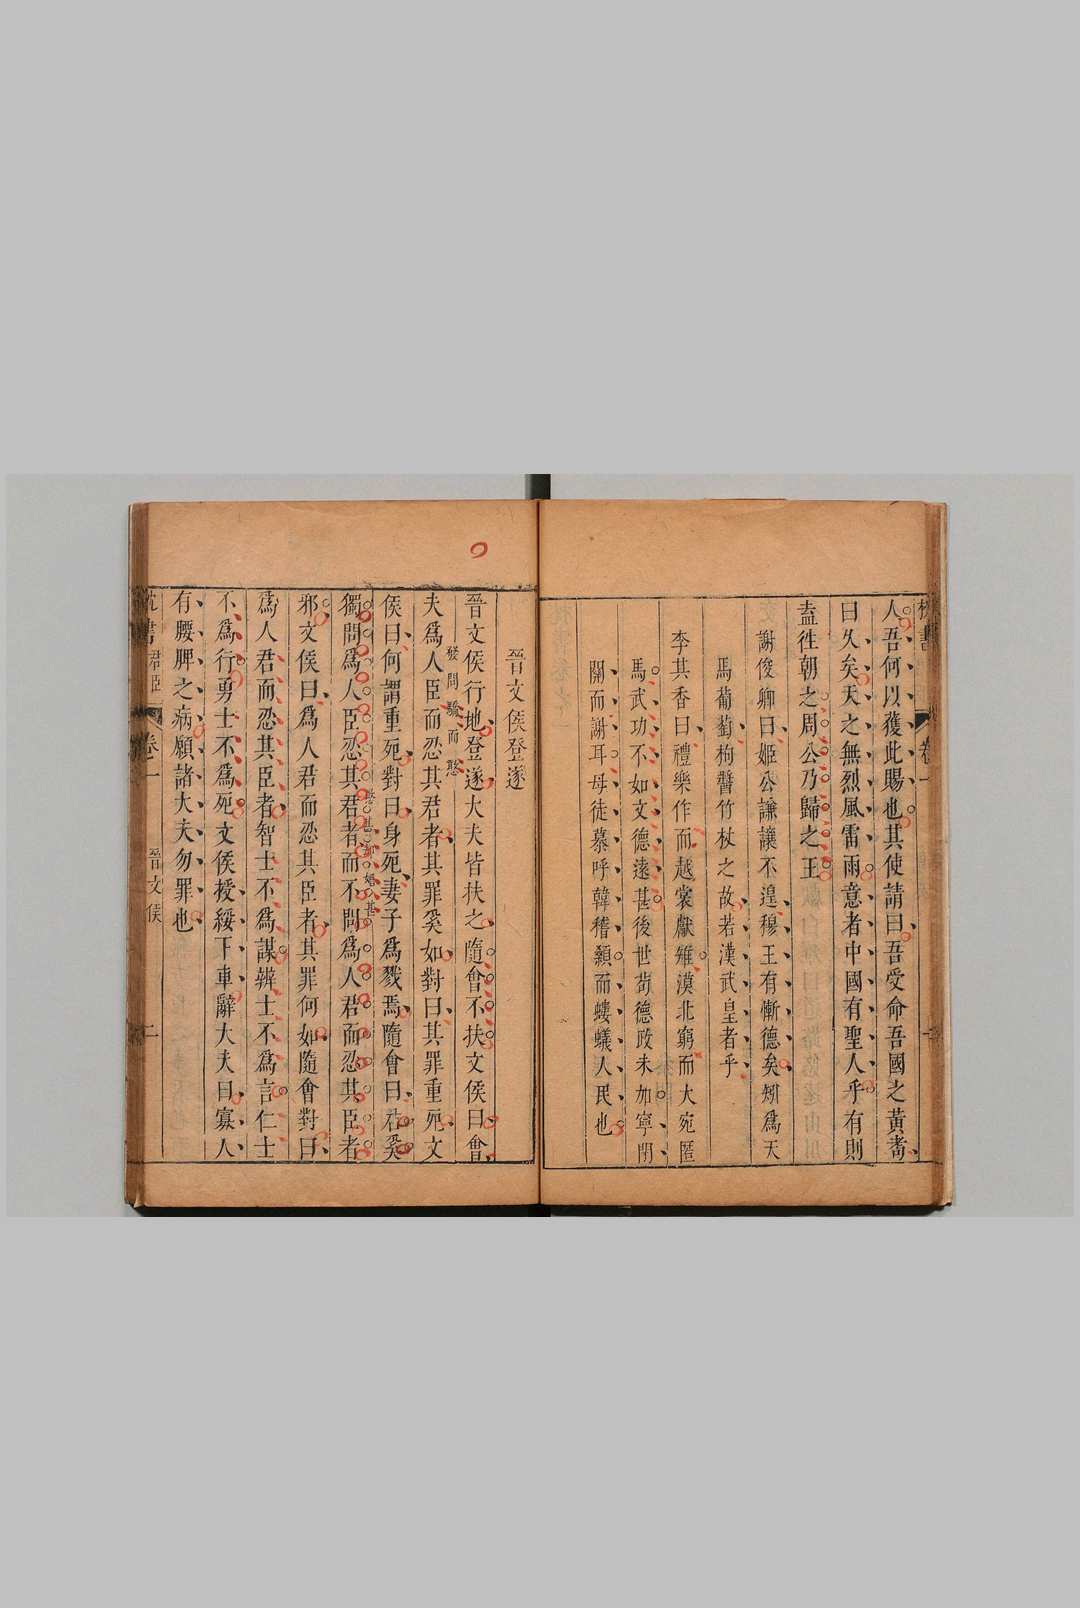 人吾何以獲此賜也其使請曰吾受命吾國之黃耇
曰久矣天之無烈風雷雨意者中國有聖人乎有則
盍徃朝之周公乃歸之王
謝俊卿曰姬公謙讓不遑穆王有慚德矣矧爲天
馬葡萄枸醬竹杖之故若漢武皇者乎
李其香曰禮樂作而越裳獻雉漠北窮而大宛匿
馬武功不如文德遠甚後世苟德政未加寧閉
關而謝耳母徒慕呼韓稽顙而螻蟻人民也
晉文侯登遂
晉文侯行地登遂大夫皆扶之隨會不扶文侯曰會
發問驕而憨
夫爲人臣而忍其君者其罪奚如對曰其罪重死文
侯曰何謂重死對曰身死妻子爲戮焉隨會曰君奚
獨問爲人臣忍其君者而不問爲人君而忍其臣者
邪文侯曰爲人君而忍其臣者其罪何如隨會對曰
爲人君而忍其臣者智士不爲謀辨士不爲言仁士
不爲行勇士不爲死文侯授綏下車辭大夫曰寡人
有腰髀之病願諸大夫勿罪也
君臣
卷一
晉文侯
二